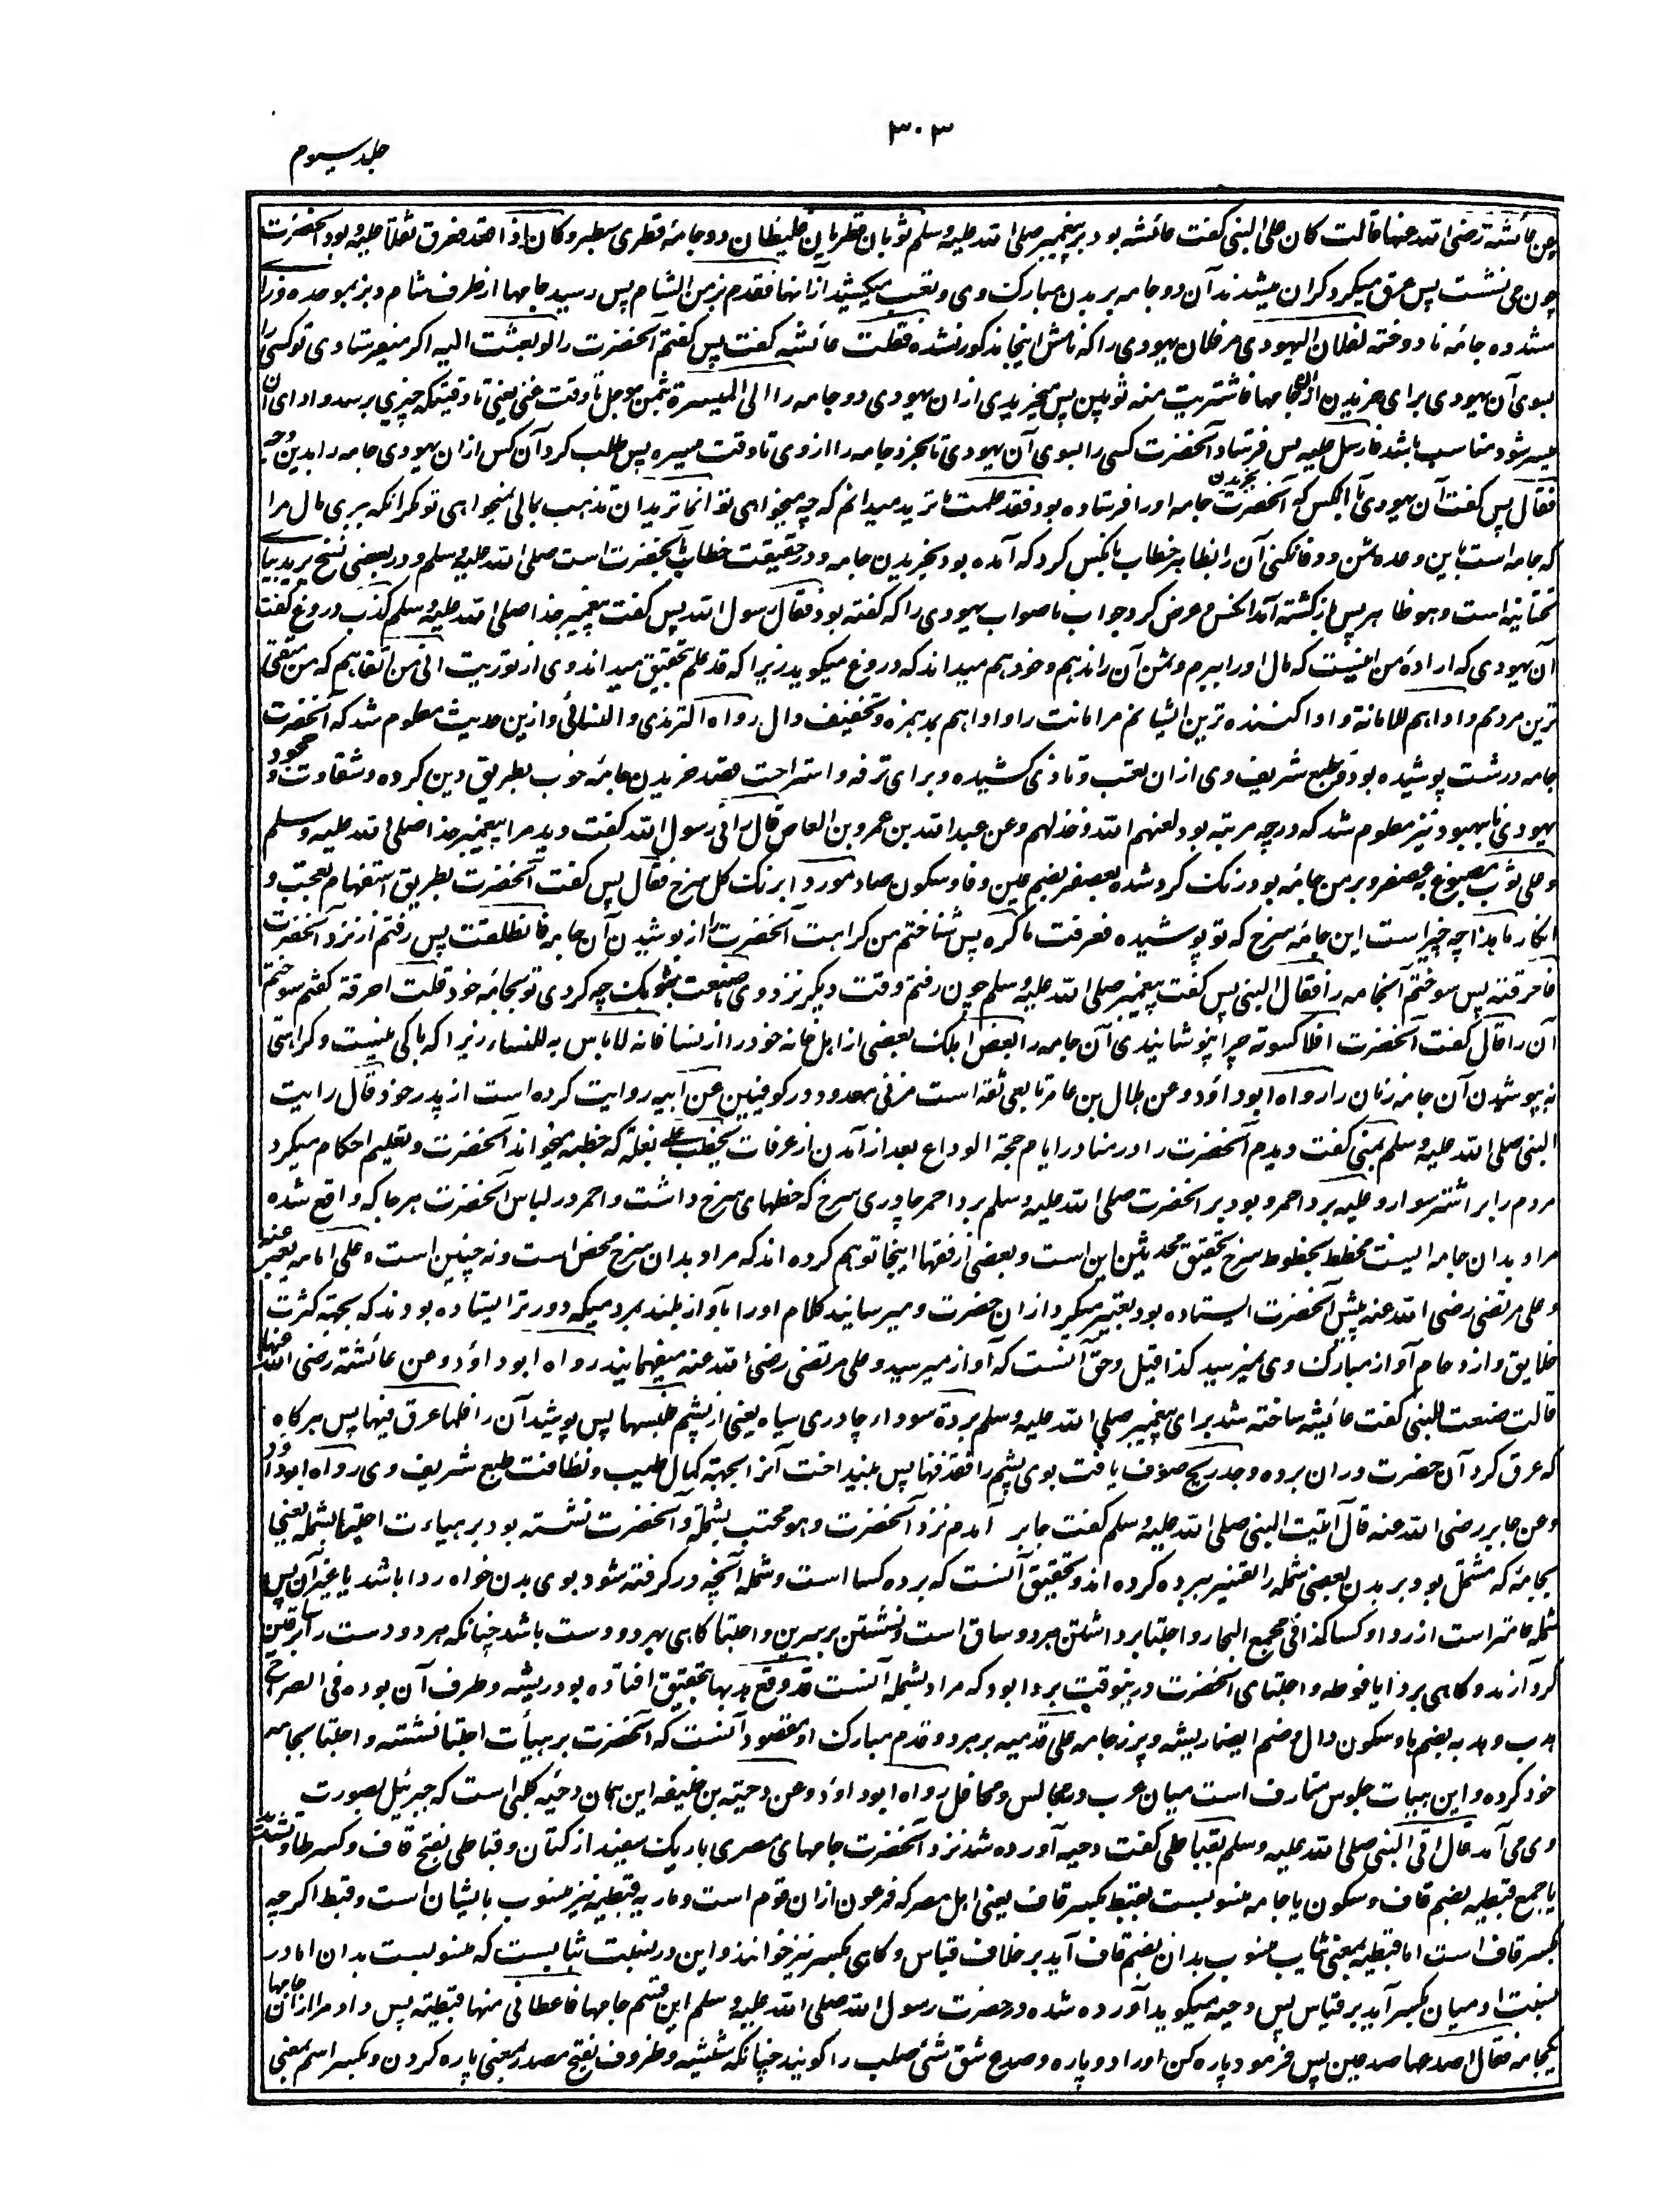 ۳۰۳
جلد سیوم
وعن عائشة رضی الله عنها قالت کان علی النبی گفت عائشه بود بر پیغمبر صلی الله علیه وسلم ثوبان قطریان غلیظان دو جامهٔ قطری سطبر وکان اذا قعد فعرق ثقلا علیه بود آنحضرت
چون می نشست پس عرق میکرد گران میشدند آن دو جامه بر بدن مبارک وی و تعب میکشید از انها فقدم بز من الشام پس رسید جامها از طرف شام و بز بموحده و زا
مشدده جامهٔ نا دوخته لفلان الیهودی مر فلان یهودی را که نامش اینجا مذکور نشده فقلت عائشه گفت پس گفتم آنحضرت را لو بعثت الیه اگر میفرستادی تو کسی را
بسوی آن یهودی برای خریدن ازان جامها فاشتریت منه ثوبین پس میخریدی ازان یهودی دو جامه را الی المیسرة بثمن موجل تا وقت غنی یعنی تا وقتیکه چیزی برسد و ادای آن
میسر شود مناسب باشد فارسل الیه پس فرستاد آنحضرت کسی را بسوی آن یهودی تا بخرد جامه را ازوی تا وقت میسره پس طلب کرد آن کس ازان یهودی جامه را بدین وجه
فقال پس گفت آن یهودی بآنکس که آنحضرت بخریدن جامه اورا فرستاده بود قد علمت ما ترید میدانم که چه میخواهی تو انما ترید ان تذهب بمالی نمیخواهی تو مگر انکه ببری مال مرا
که جامه است باین وعده ثمن و وفا نکنی آن را بظاهر خطاب بانکس کرد که آمده بود بخریدن جامه و در حقیقت خطاب بآنحضرت است صلی الله علیه وسلم و در بعضی نسخ یرید بیا
تحتانیه است و هو ظاهر پس باز گشته آمد انکس و عرض کرد جواب ناصواب یهودی را که گفته بود فقال رسول الله پس گفت پیغمبر خدا صلی الله علیه وسلم کذب دروغ گفت
آن یهودی که ارادهٔ من اینست که مال اورا ببرم و ثمن آن را ندهم و خود هم میداند که دروغ میگوید زیرا که قد علم تحقیق میداند وی از توریت انی من اتقاهم که من متقی
ترین مردمم و آداهم للامانة و ادا کننده ترین ایشانم مر امانت را و اداهم بمد همزه و تخفیف دال رواه الترمذی والنسائی و ازین حدیث معلوم شد که آنحضرت
جامه درشت پوشیده بود و طبع شریف وی ازان تعب و تاذی کشیده و برای ترفه و استراحت قصد خریدن جامهٔ خوب بطریق دین کرده و شقاوت و جحود
یهودی نا بهبود نیز معلوم شد که در چه مرتبه بود لعنهم الله وخذلهم وعن عبدالله بن عمرو بن العاص قال رآنی رسول الله گفت دید مرا پیغمبر خدا صلی الله علیه وسلم
وعلی ثوب مصبوغ بعصفر و بر من جامهٔ بود رنگ کرد شده بعصفر بضم عین و فا و سکون صاد موردا برنگ گل سرخ فقال پس گفت آنحضرت بطریق استفهام تعجب و
انکار ما هذا چه چیز است این جامهٔ سرخ که تو پوشیده فعرفت ما کره پس شناختم من کراهت آنحضرت را از پوشیدن آن جامه فانطلقت پس رفتم از نزد آنحضرت
فاحرقته پس سوختم آنجامه را فقال النبی پس گفت پیغمبر صلی الله علیه وسلم چون رفتم وقت دیگر نزد وی ما صنعت بثوبک چه کردی تو بجامهٔ خود قلت احرقته گفتم سوختم
آن را قال گفت آنحضرت افلا کسوته چرا نپوشانیدی آن جامه را بعض اهلک بعضی از اهل خانه خود را از نسا فانه لا باس به للنساء زیرا که باکی نیست و کراهتی
به پوشیدن آن جامه زنان را رواه ابو داود وعن هلال بن عامر تابعی ثقه است مزنی معدود در کوفیین عن ابیه روایت کرده است از پدر خود قال رایت
النبی صلی الله علیه وسلم بمنی گفت دیدم آنحضرت را در منا در ایام حجة الوداع بعد از آمدن از عرفات یخطب علی بغلة که خطبه میخواند آنحضرت و تعلیم احکام میکرد
مردم را بر اشتر سوار وعلیه برد احمر و بود بر آنحضرت صلی الله علیه وسلم برد احمر چادری سرخ که خطهای سرخ داشت و احمر در لباس آنحضرت هر جا که واقع شده
مراد بدان جامه ایست مخطط بخطوط سرخ تحقیق محدثین این است و بعضی از فقها اینجا توهم کرده اند که مراد بدان سرخ محض است و نه چنین است وعلی امامه یعبر عنه
وعلی مرتضی رضی الله عنه پیش آنحضرت ایستاده بود تعبیر میکرد ازان حضرت و میرسانید کلام اورا بآواز بلند بمردمیکه دورتر ایستاده بودند که بجهة کثرت
خلایق و ازدحام آواز مبارک وی نمیرسید کذا قیل و حق آنست که آواز میرسید و علی مرتضی رضی الله عنه میفهمانید رواه ابو داود وعن عائشة رضی الله عنها
قالت صنعت للنبی گفت عائشه ساخته شد برای پیغمبر صلی الله علیه وسلم بردة سوداء چادری سیاه یعنی از پشم فلبسها پس پوشید آن را فلما عرق فیها پس هرگاه
که عرق کرد آن حضرت دران برده وجد ریح صوف یافت بوی پشم را فقذفها پس بینداخت آنرا بجهة کمال طیب و نظافت طبع شریف وی رواه ابوداود
وعن جابر رضی الله عنه قال اتیت النبی صلی الله علیه وسلم گفت جابر آمدم نزد آنحضرت وهو محتب بشملة و آنحضرت نشسته بود بر هیاءت احتبا بشمله یعنی
بجامهٔ که مشتمل بود بر بدن بعضی شمله را تفسیر ببرده کرده اند و تحقیق آنست که برده کسا است و شمله آنچه در گرفته شود بوی بدن خواه ردا باشد یا غیر آن پس
شمله عامتر است از ردا و کسا کذا فی مجمع البحار و احتبا برداشتن هر دو ساق است و نشستن بر سرین و احتبا گاهی بهر دو دست باشد چنانکه هر دو دست را بر ساقین
گرد آرند و گاهی بردا یا فوطه و احتبای آنحضرت درینوقت بردا بود که مراد بشمله آنست قد وقع هدبها تحقیق افتاده بود ریشه و طرف آن بوده فی الصراح
هدب و هدبه بضم ها و سکون دال و ضم ایضا ریشه و پرز جامه علی قدمیه بر هر دو قدم مبارک او مقصود آنست که آنحضرت بر هیأت احتبا نشسته و احتبا بجامه
خود کرده و این هیات جلوس متعارف است میان عرب در مجالس و محافل رواه ابو داود وعن دحیة بن خلیفه این همان دحیه کلبی است که جبرئیل بصورت
وی می آمد قال اتی النبی صلی الله علیه وسلم بقباطی گفت دحیه آورده شد نزد آنحضرت جامهای مصری باریک سفید از کتان و قباطی بفتح قاف و کسر طا و تشدید
یا جمع قبطیه بضم قاف و سکون با جامه منسوبست بقبط بکسر قاف یعنی اهل مصر که فرعون ازان قوم است و ماریه قبطیه نیز منسوب بایشان است و قبط اگرچه
بکسر قاف است اما قبطیه بمعنی ثیاب منسوب بدان بضم قاف آید بر خلاف قیاس و گاهی بکسر نیز خوانند و این در نسبت ثیابست که منسوبست بدان اما در
نسبت ادمیان بکسر آید بر قیاس پس دحیه میگوید آورده شده در حضرت رسول الله صلی الله علیه وسلم این قسم جامها فاعطانی منها قبطیة پس داد مرا ازان جامها
یکجامه فقال اصدعها صدعین پس فرمود پاره کن اورا دو پاره و صدع شق شئ صلب را گویند چنانکه شیشه و ظروف بفتح مصدر بمعنی پاره کردن و بکسر اسم بمعنی